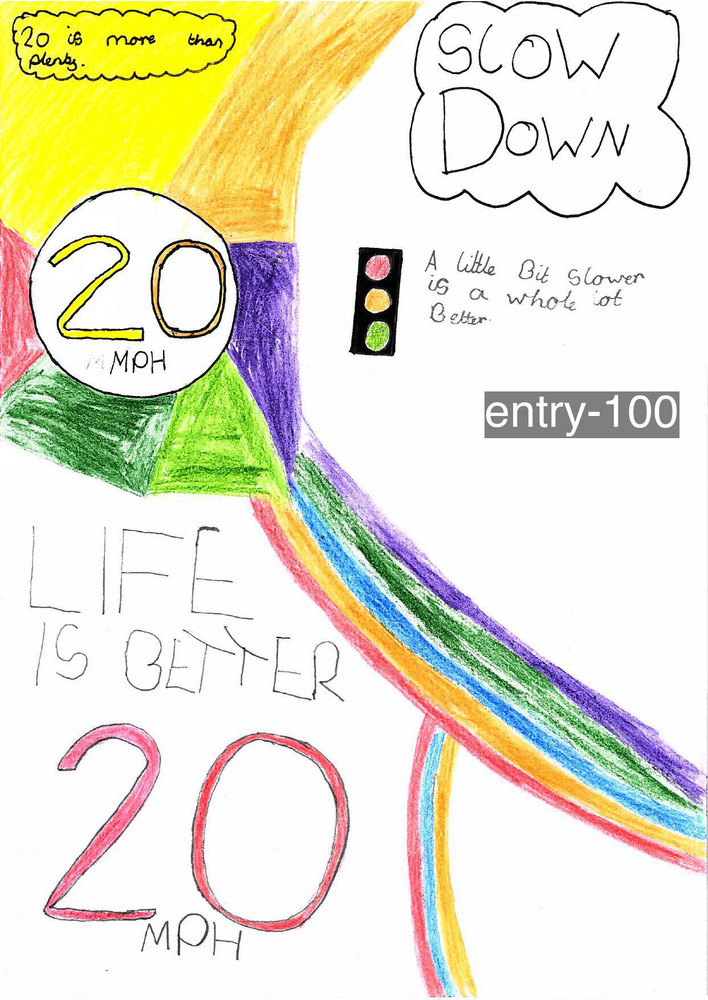 20 is more than
plenty.
SLOW
DOWN
20
MPH
A little Bit Slower
is a whole lot
Better.
entry-100
LIFE
IS BETTER
20
MPH